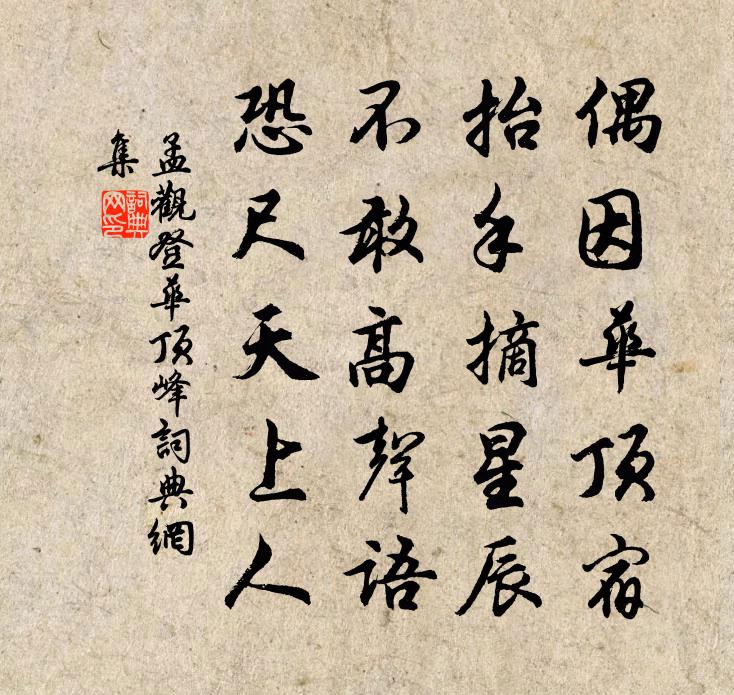 偶因华顶宿
抬手摘星辰
不敢高聲語
恐尺天上人
孟觀登华顶峰詞典網
集
詞典网印